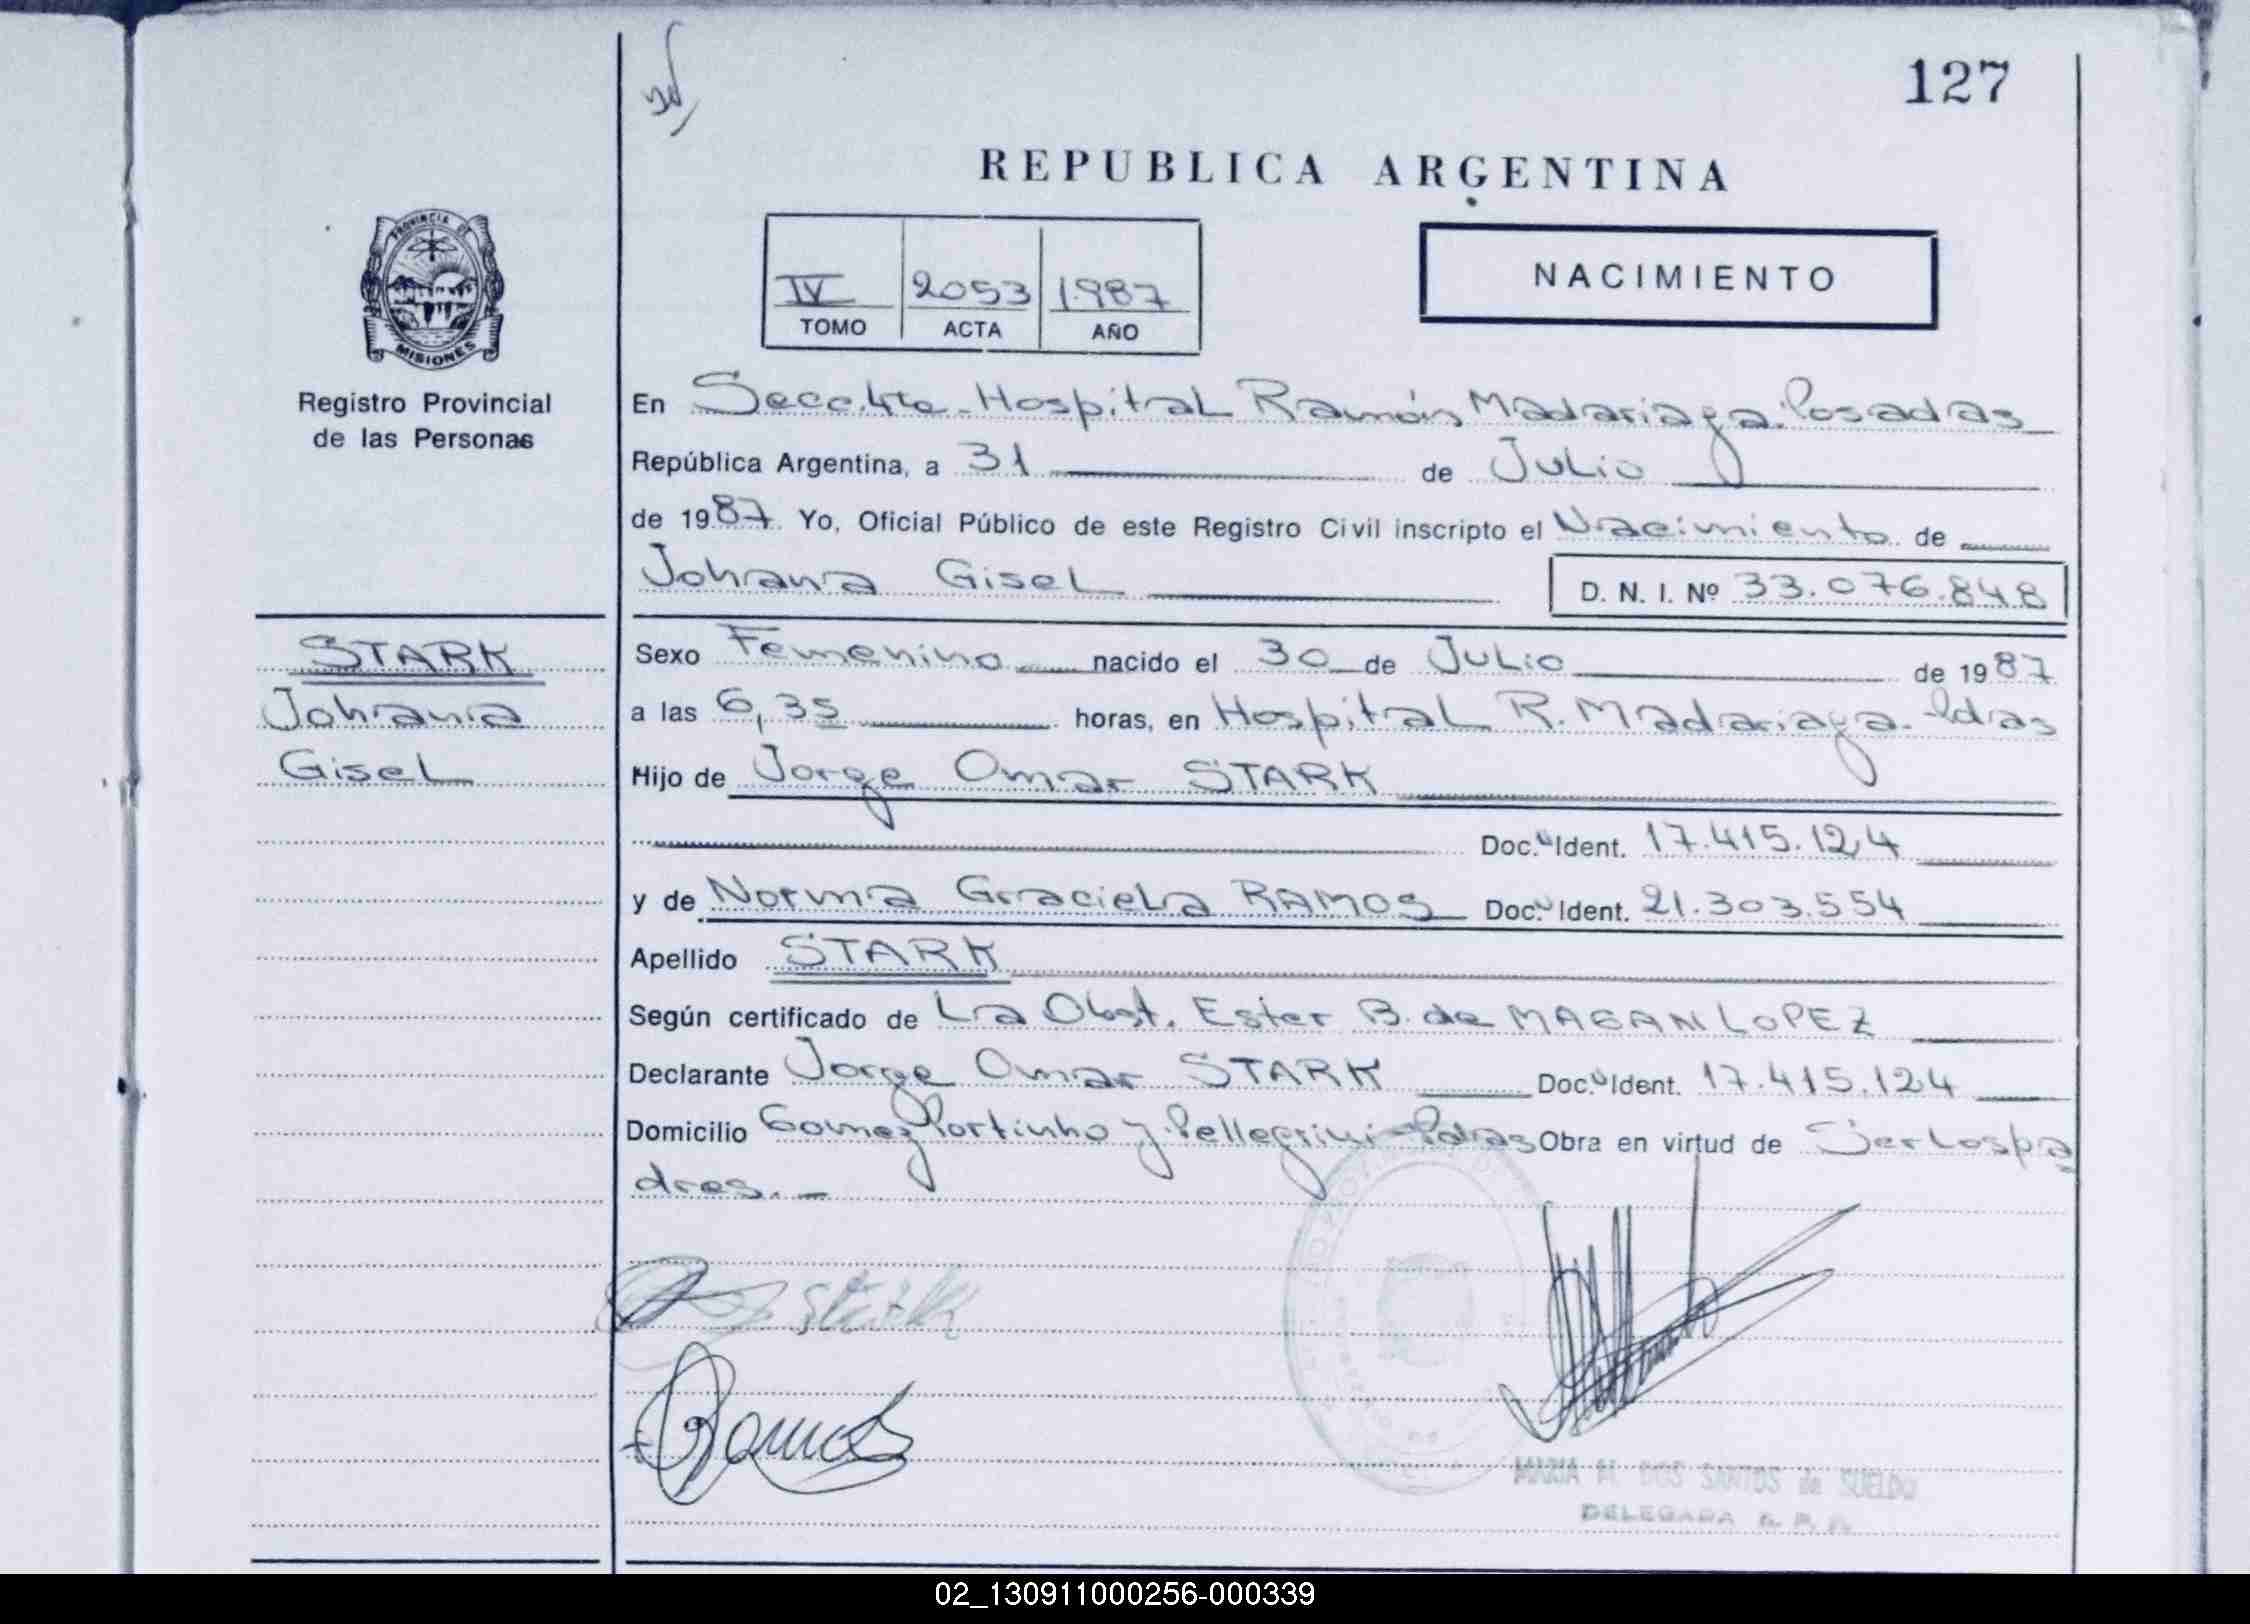 127
REPUBLICA ARGENTINA
PROVINCIA DE
MISIONES
Registro Provincial
de las Personas
IV 2053 1987
TOMO ACTA AÑO
NACIMIENTO
En Secc. 4ta - Hospital Ramón Madariaga. Posadas
República Argentina, a 31 de Julio
de 1987. Yo, Oficial Público de este Registro Civil inscripto el Nacimiento de
Johana Gisel D. N. I. Nº 33.076.848
STARK
Johana
Gisel
Sexo Femenino nacido el 30 de Julio de 1987
a las 6,35 horas, en Hospital R. Madariaga - Pdas
Hijo de Jorge Omar STARK
Doc. Ident. 17.415.124
y de Norma Graciela RAMOS Doc. Ident. 21.303.554
Apellido STARK
Según certificado de La Obst. Ester B. de MAGAN LOPEZ
Declarante Jorge Omar STARK Doc. Ident. 17.415.124
Domicilio Gomez Portinho y Pellegrini - Pdas Obra en virtud de Ser los pa
dres. -
Stark
Ramos
MARIA M. DOS SANTOS de SUELDO
DELEGADA
02_130911000256-000339